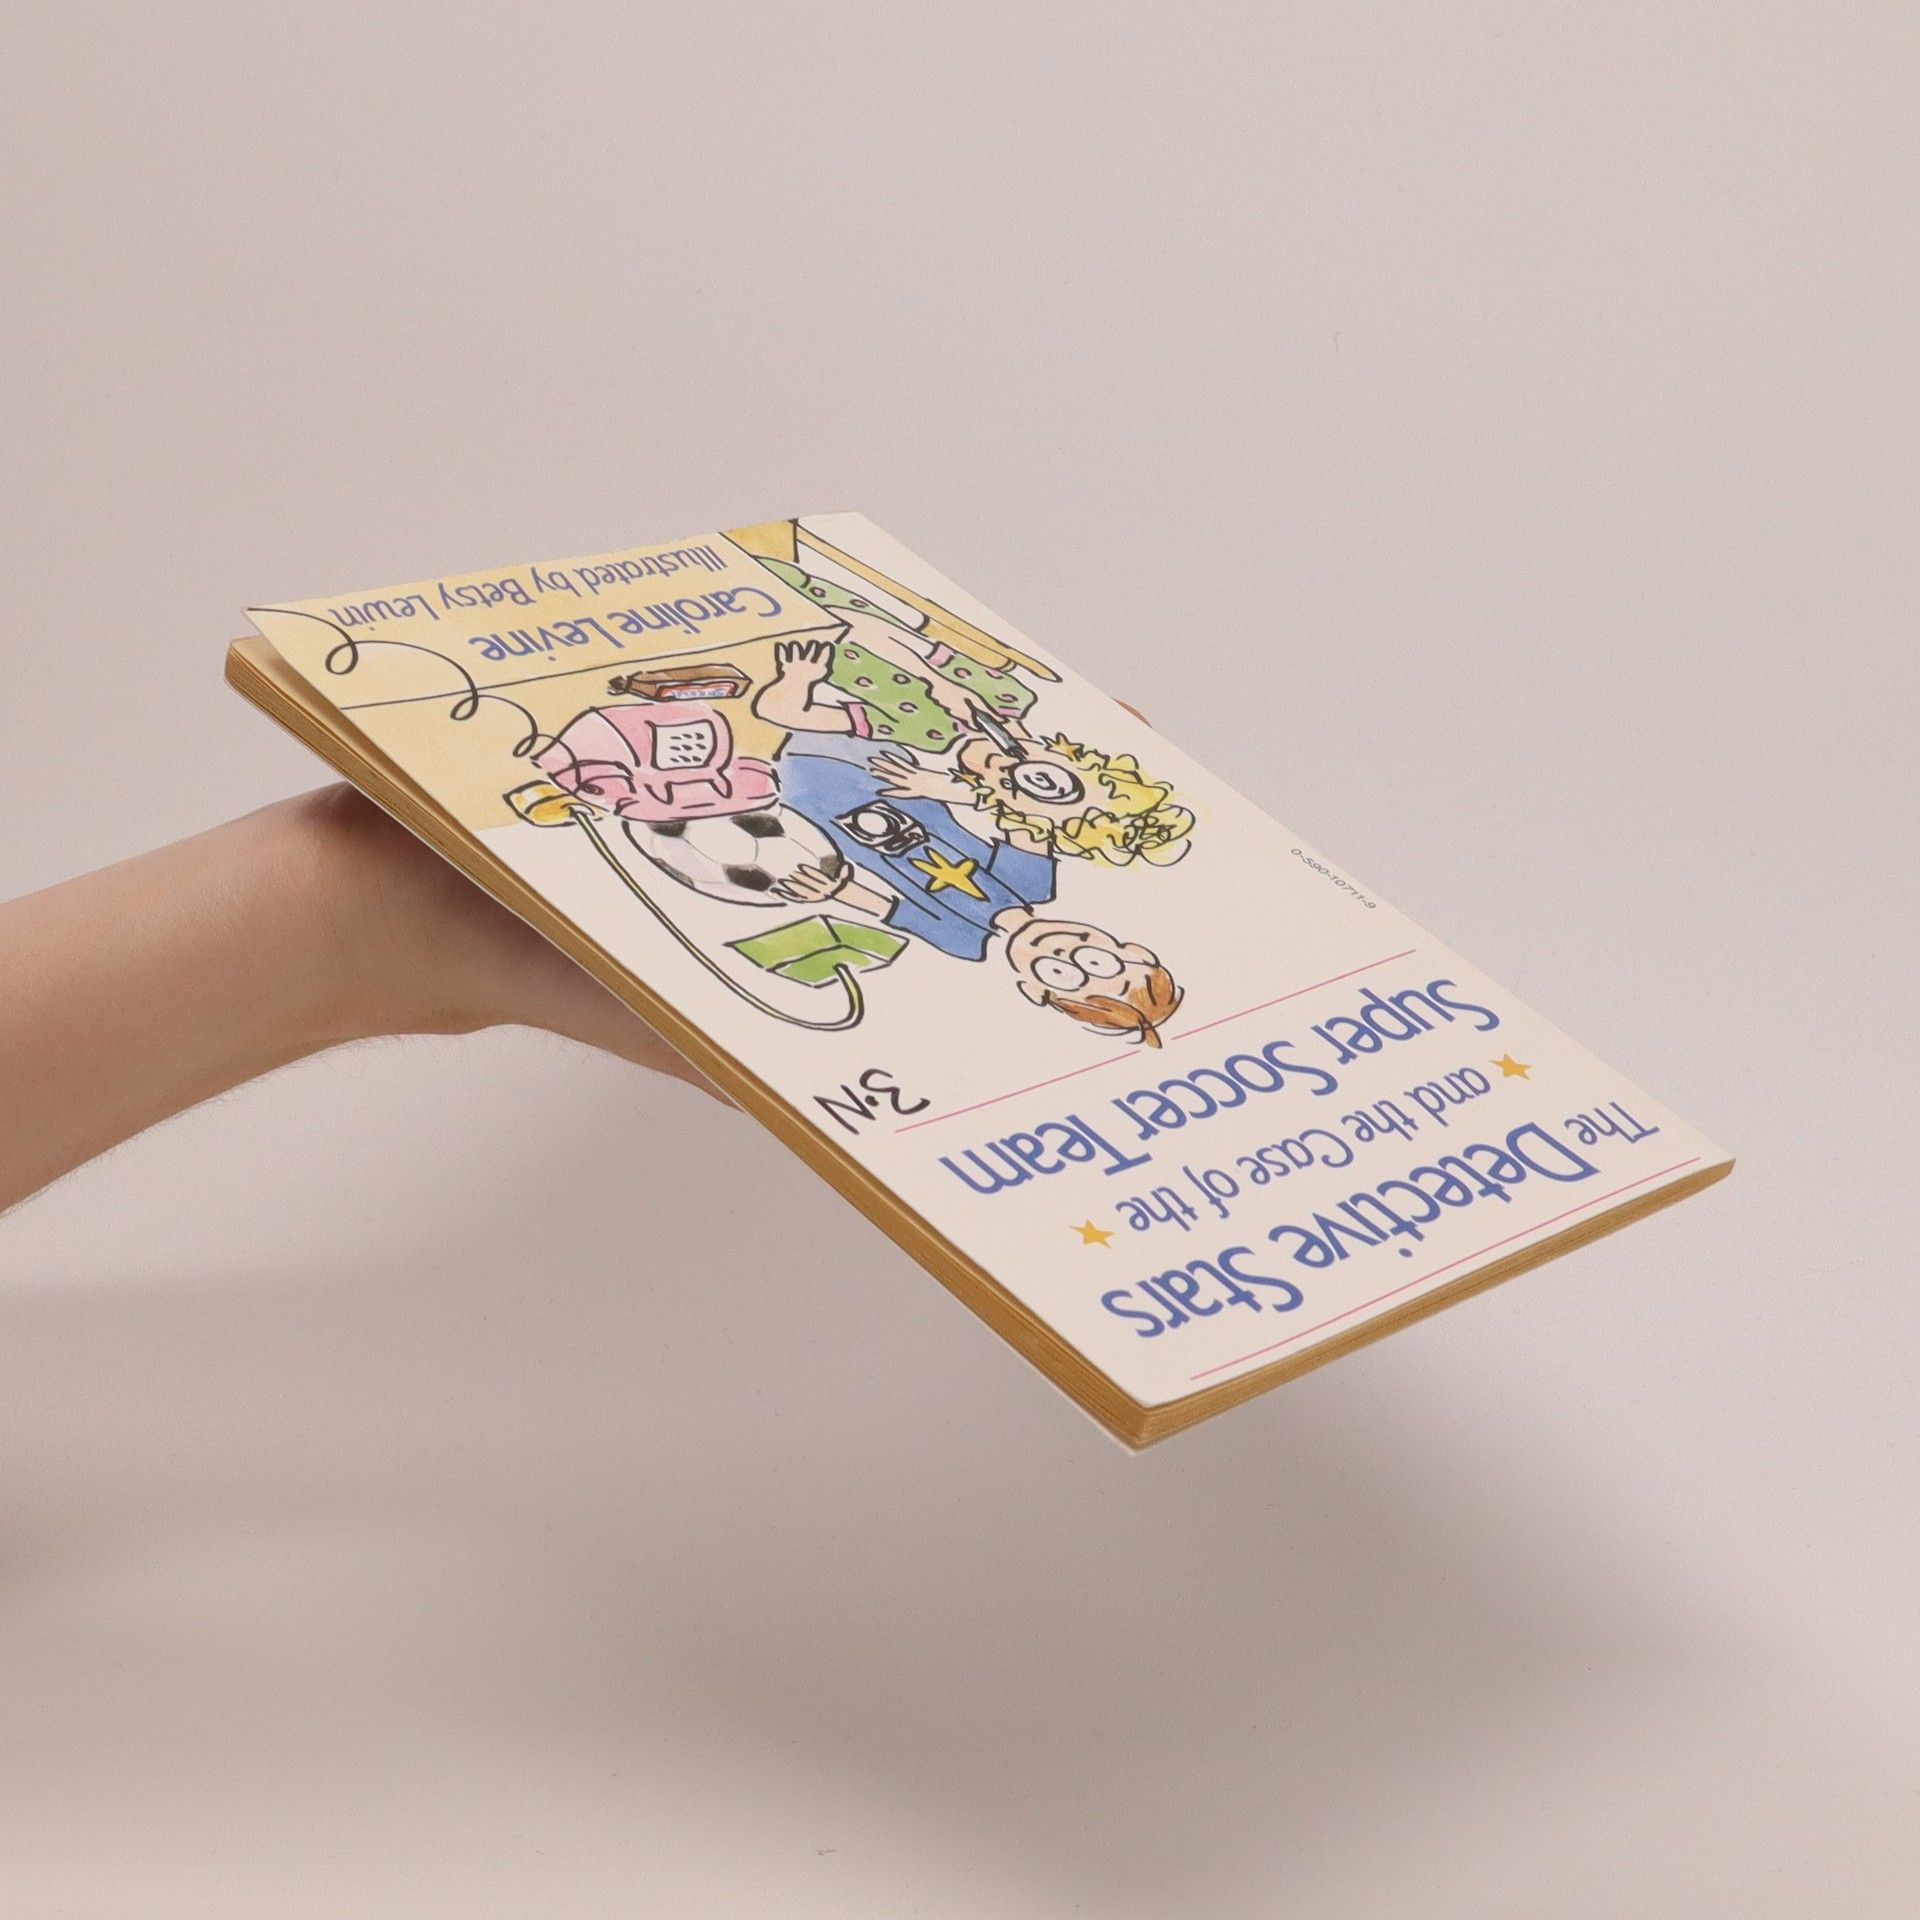 The Detective Stars
and the Case of the
Super Soccer Team
3·N
0-590-10711-9
Caroline Levine
Illustrated by Betsy Lewin